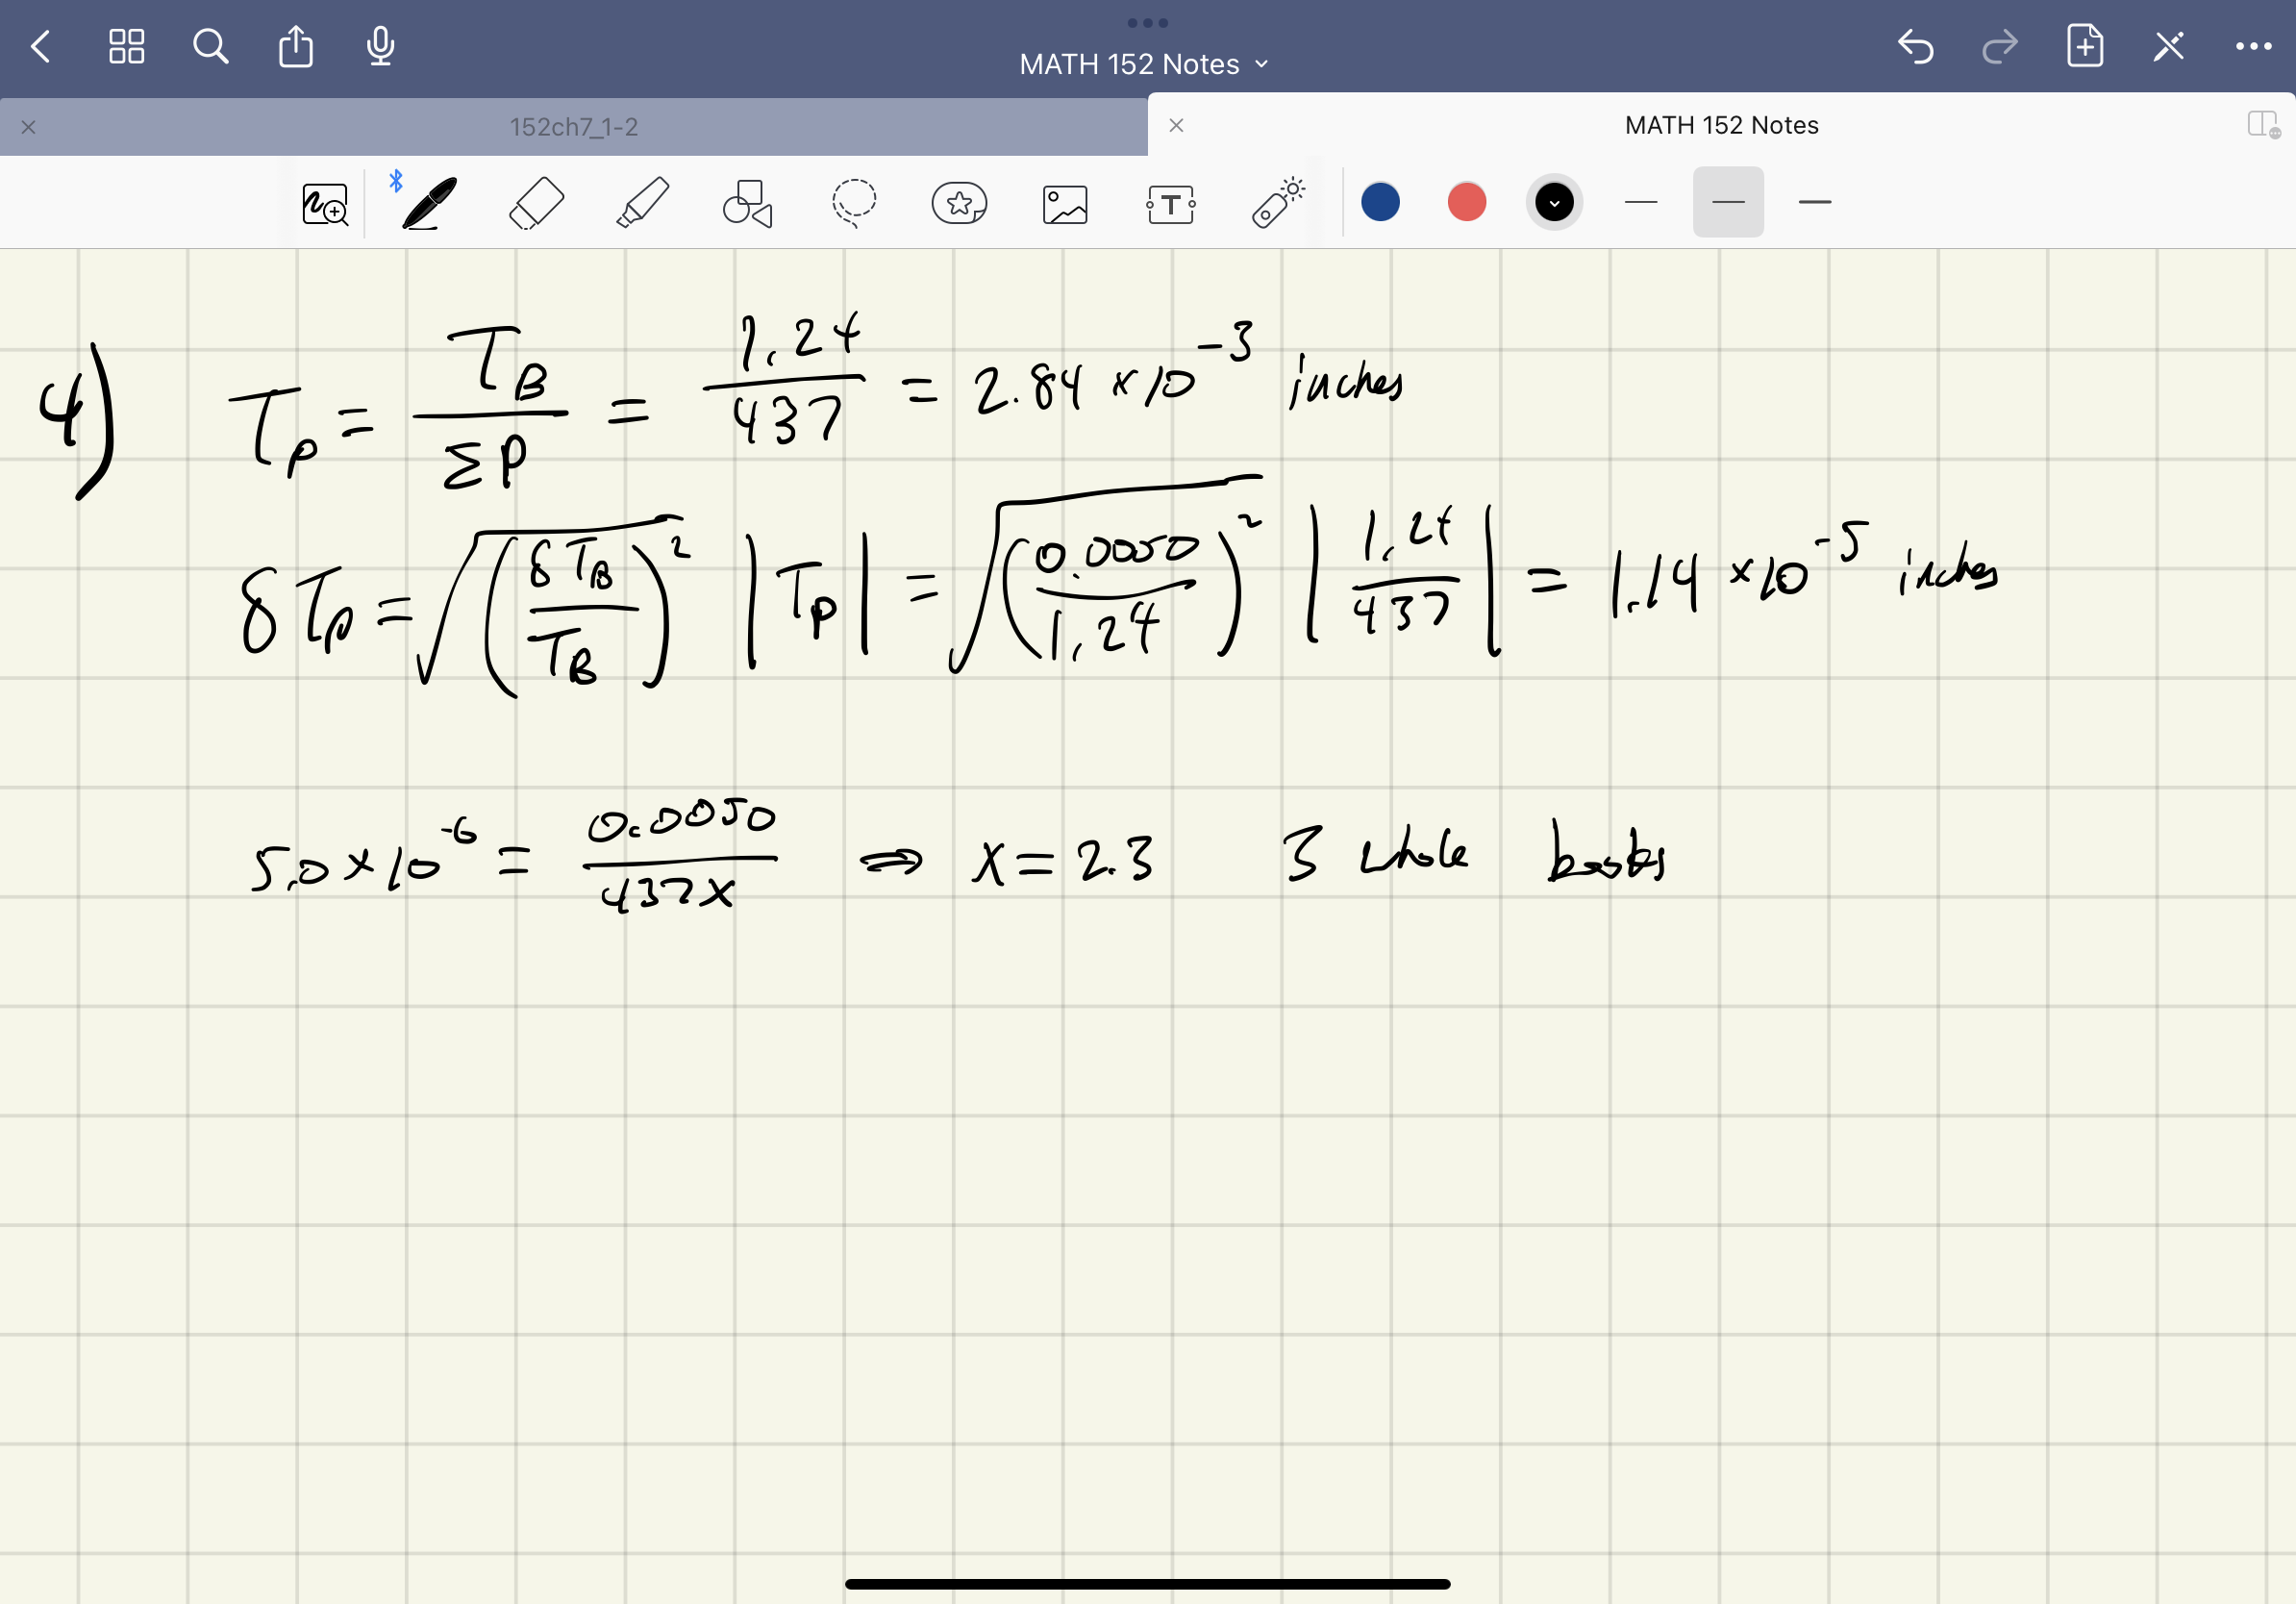 MATH 152 Notes
152ch7_1-2
MATH 152 Notes
T
4) T_p = T_B / Σp = 1.24 / 437 = 2.84 × 10^-3 inches
δT_p = √(δT_B / T_B)^2 |T_p| = √(0.0050 / 1.24)^2 |1.24 / 437| = 1.14 × 10^-5 inches
5.0 × 10^-6 = 0.0050 / 437x ⇒ x = 2.3 3 whole books